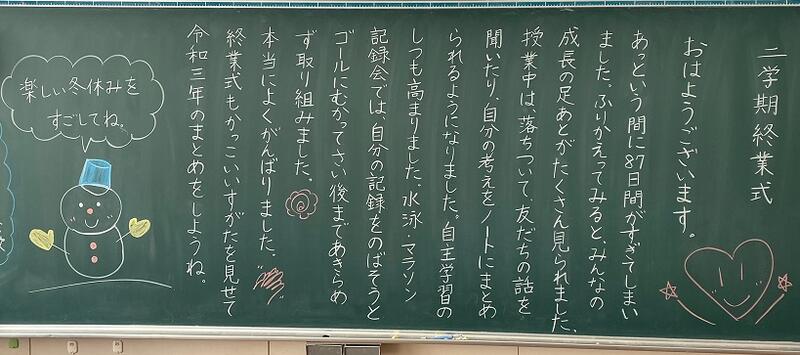 二学期終業式
おはようございます。
あっという間に87日間がすぎてしまい
ました。ふりかえってみると、みんなの
成長の足あとがたくさん見られました。
授業中は、落ちついて、友だちの話を
聞いたり、自分の考えをノートにまとめ
られるようになりました。自主学習の
しつも高まりました。水泳、マラソン
記録会では、自分の記録をのばそうと
ゴールにむかってさい後まであきらめ
ず取り組みました。
本当によくがんばりました。
終業式もかっこいいすがたを見せて
令和三年のまとめをしようね。
楽しい冬休みを
すごしてね。